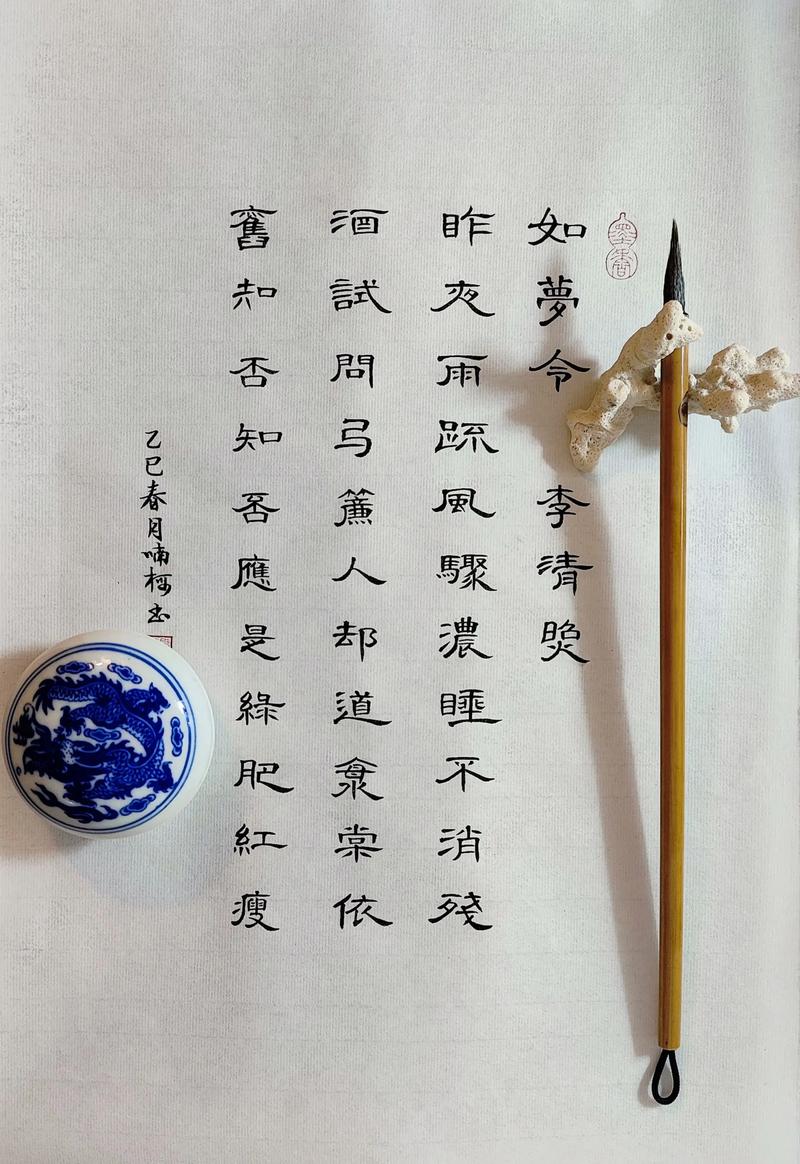 墨香
如夢令 李清照
昨夜雨疏風驟濃睡不消殘
酒試問弓簾人却道海棠依
舊知否知否應是綠肥紅瘦
乙巳春月喃柯书